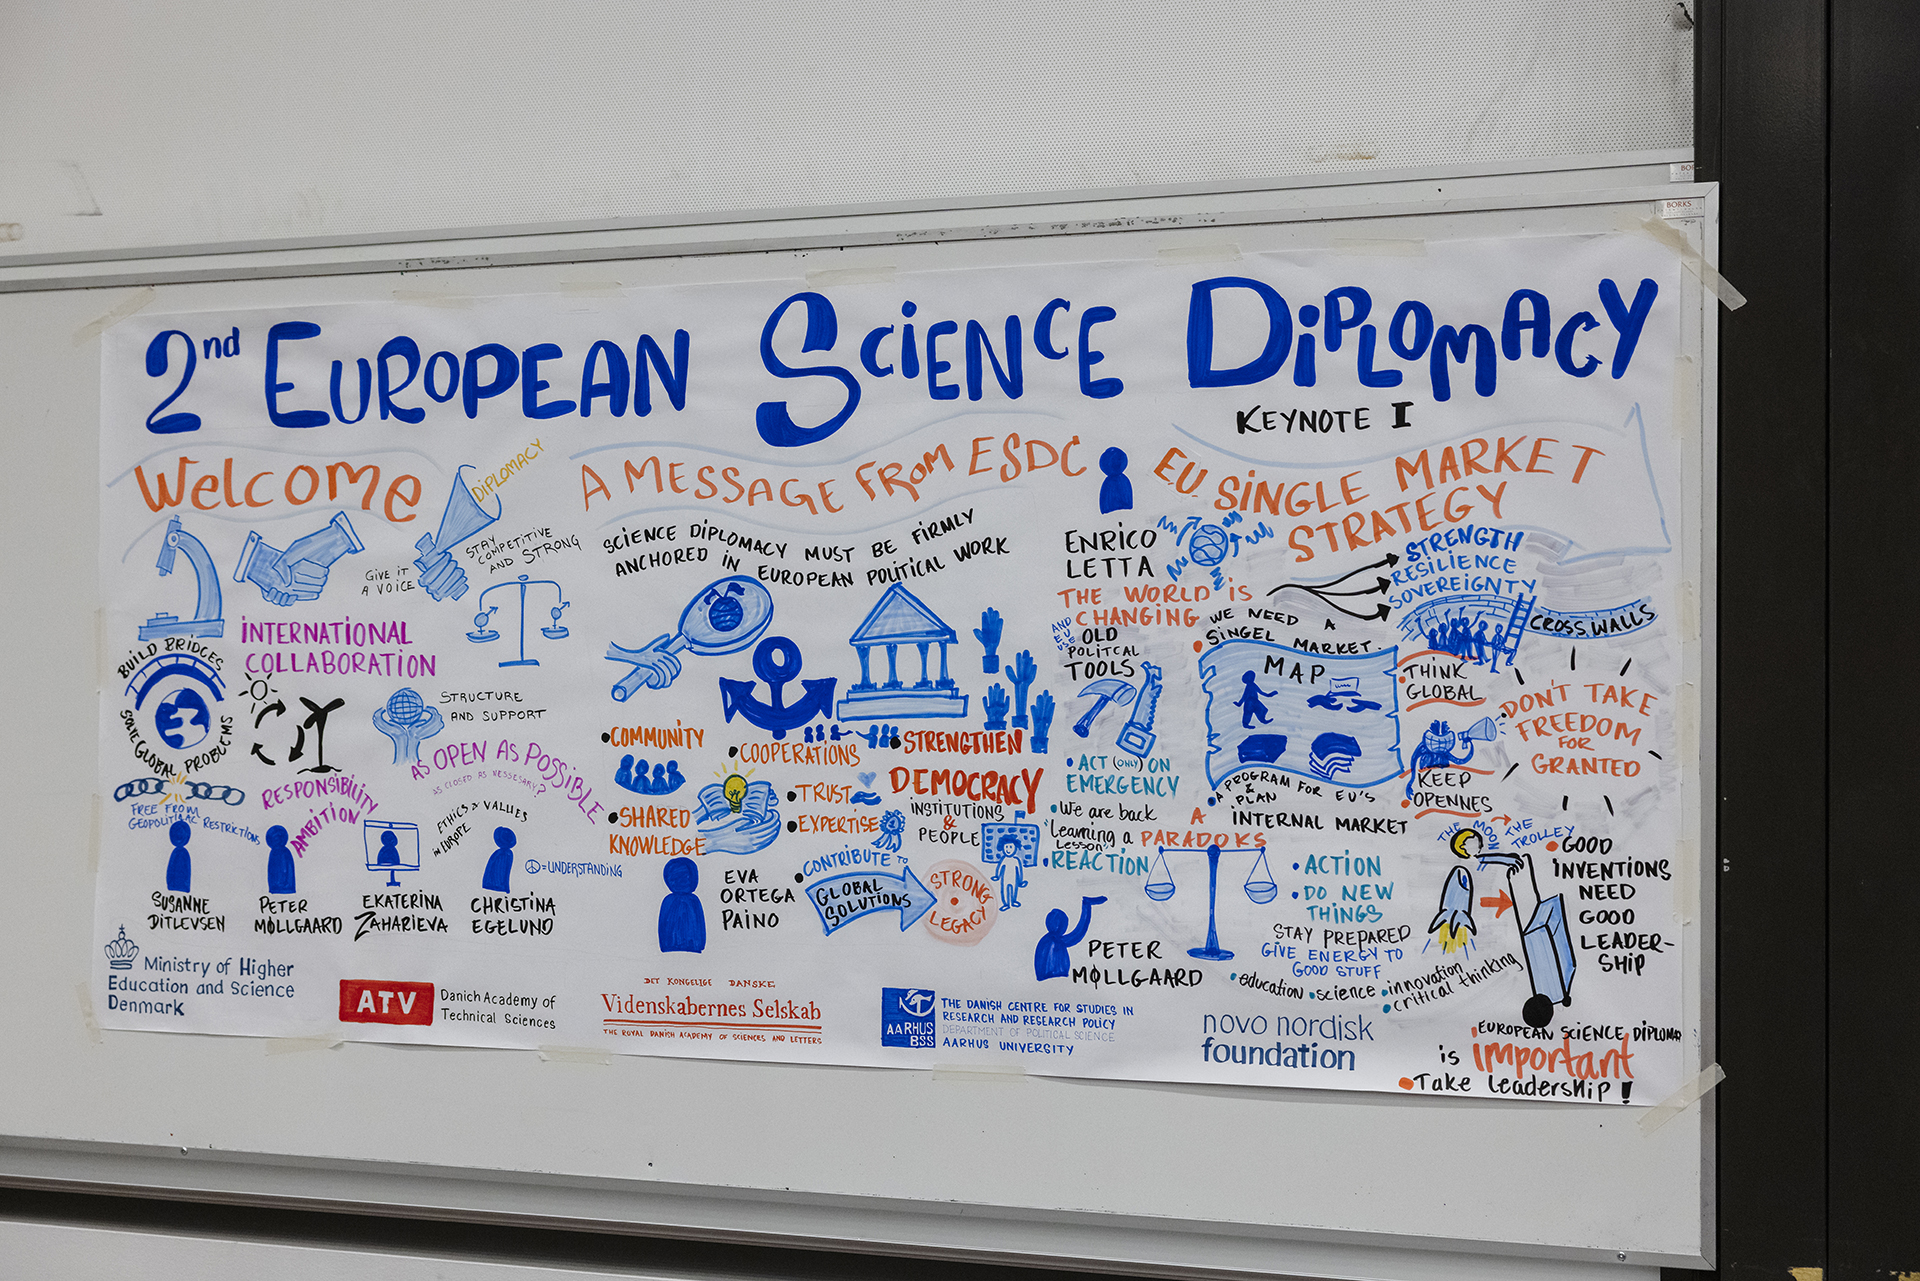 BORKS
2nd EUROPEAN SCIENCE DIPLOMACY
KEYNOTE I
Welcome
DIPLOMACY
GIVE IT
A VOICE
STAY
COMPETITIVE
AND STRONG
INTERNATIONAL
COLLABORATION
BUILD BRIDGES
SOLVE GLOBAL PROBLEMS
STRUCTURE
AND SUPPORT
FREE FROM
GEOPOLITICAL RESTRICTIONS
RESPONSIBILITY
AMBITION
AS OPEN AS POSSIBLE
AS CLOSED AS NESSESARY?
ETHICS & VALUES
IN EUROPE
=UNDERSTANDING
SUSANNE
DITLEVSEN
PETER
MØLLGAARD
EKATERINA
ZAHARIEVA
CHRISTINA
EGELUND
A MESSAGE FROM ESDC
SCIENCE DIPLOMACY MUST BE FIRMLY
ANCHORED IN EUROPEAN POLITICAL WORK
•COMMUNITY
•SHARED
KNOWLEDGE
•COOPERATIONS
•TRUST
•EXPERTISE
•STRENGTHEN
DEMOCRACY
INSTITUTIONS
&
PEOPLE
EVA
ORTEGA
PAINO
•CONTRIBUTE TO
GLOBAL
SOLUTIONS
STRONG
LEGACY
E.U. SINGLE MARKET
STRATEGY
ENRICO
LETTA
THE WORLD IS
CHANGING
OLD
POLITCAL
TOOLS
•ACT (ONLY) ON
EMERGENCY
•We are back
"Learning a
Lesson"
•REACTION
STRENGTH
RESILIENCE
SOVEREIGNTY
WE NEED A
•SINGEL MARKET.
MAP
•A PROGRAM FOR EU'S
& PLAN
INTERNAL MARKET
CROSS WALLS
•THINK
GLOBAL
•KEEP
OPENNES
DON'T TAKE
FREEDOM
FOR
GRANTED
A
PARADOKS
•ACTION
•DO NEW
THINGS
STAY PREPARED
GIVE ENERGY TO
GOOD STUFF
•education •science •innovation
critical thinking
PETER
MØLLGAARD
THE MOON
THE TROLLEY
•GOOD
INVENTIONS
NEED
GOOD
LEADER-
SHIP
EUROPEAN SCIENCE DIPLOMA
is important
•Take leadership!
Ministry of Higher
Education and Science
Denmark
ATV
Danich Academy of
Technical Sciences
DET KONGELIGE DANSKE
Videnskabernes Selskab
THE ROYAL DANISH ACADEMY OF SCIENCES AND LETTERS
AARHUS
BSS
THE DANISH CENTRE FOR STUDIES IN
RESEARCH AND RESEARCH POLICY
DEPARTMENT OF POLITICAL SCIENCE
AARHUS UNIVERSITY
novo nordisk
foundation